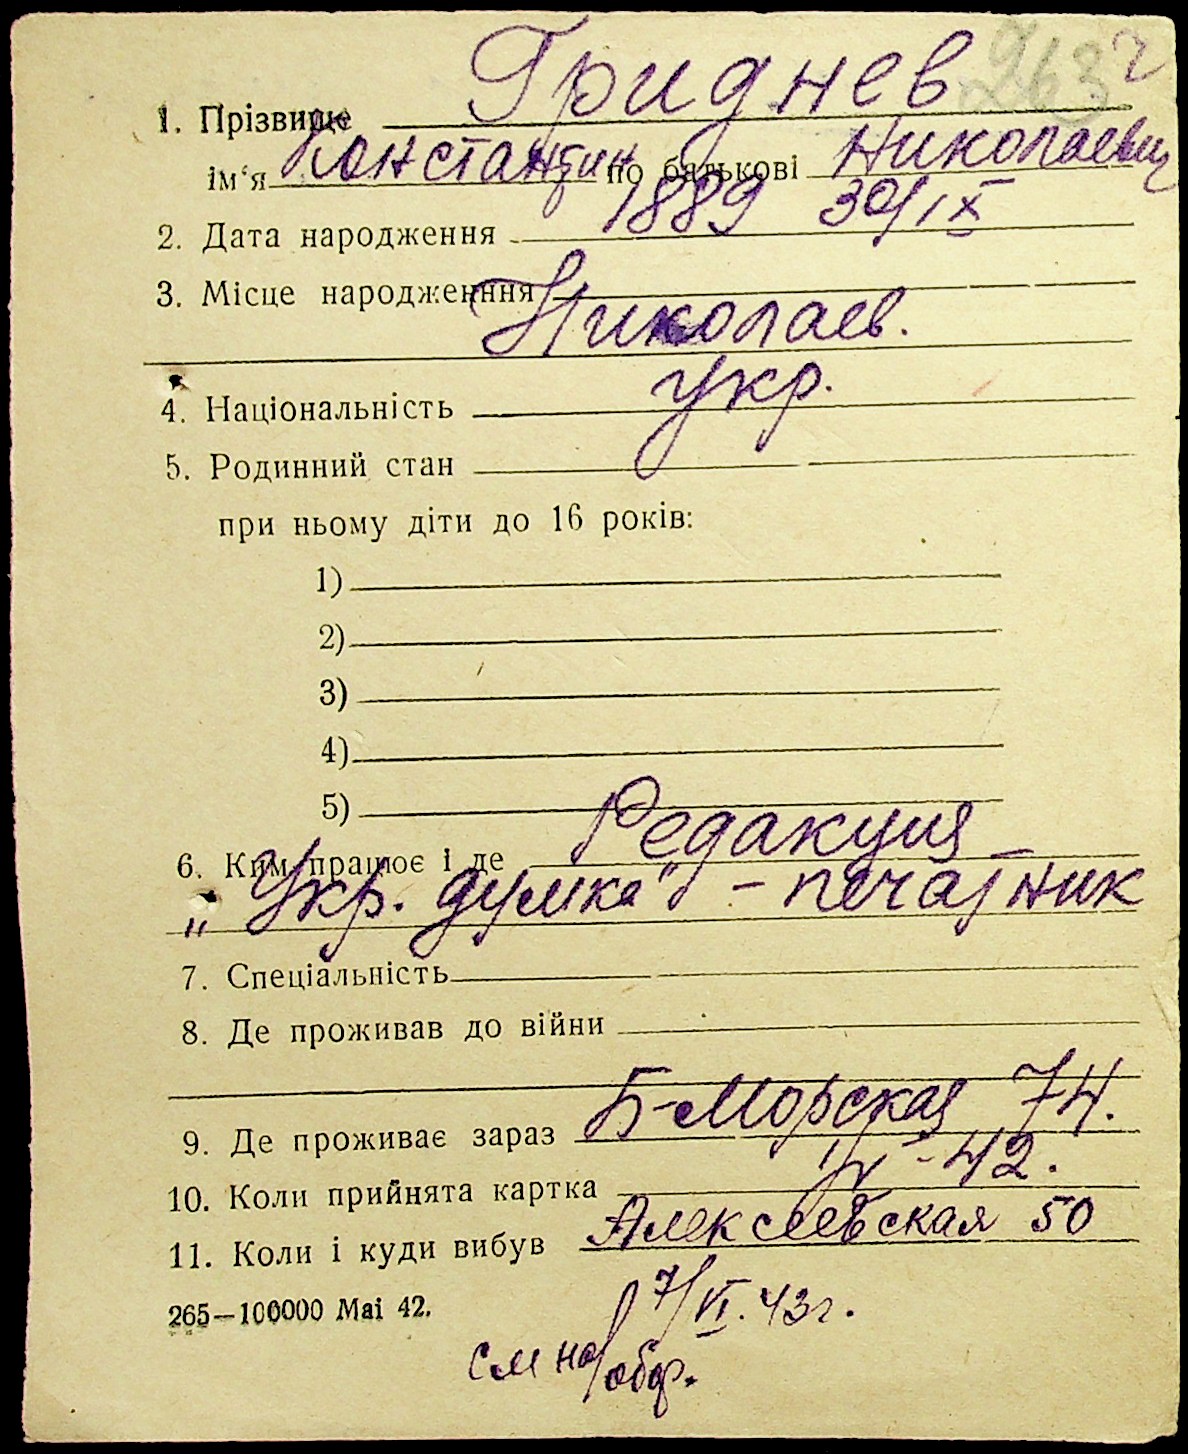 263 г
1. Прізвище Гриднев
ім‘я Константин по батькові Николаевич
2. Дата народження 1889 30/IX
3. Місце народженння Николаев.
4. Національність Укр.
5. Родинний стан
при ньому діти до 16 років:
1)
2)
3)
4)
5)
6. Ким працює і де Редакция
„Укр. думка" – печатник
7. Спеціальність
8. Де проживав до війни
9. Де проживає зараз Б-Морская 74.
10. Коли прийнята картка -42.
11. Коли і куди вибув Алексеевская 50
265—100000 Mai 42. 7/VI. 43 г.
см на обор.